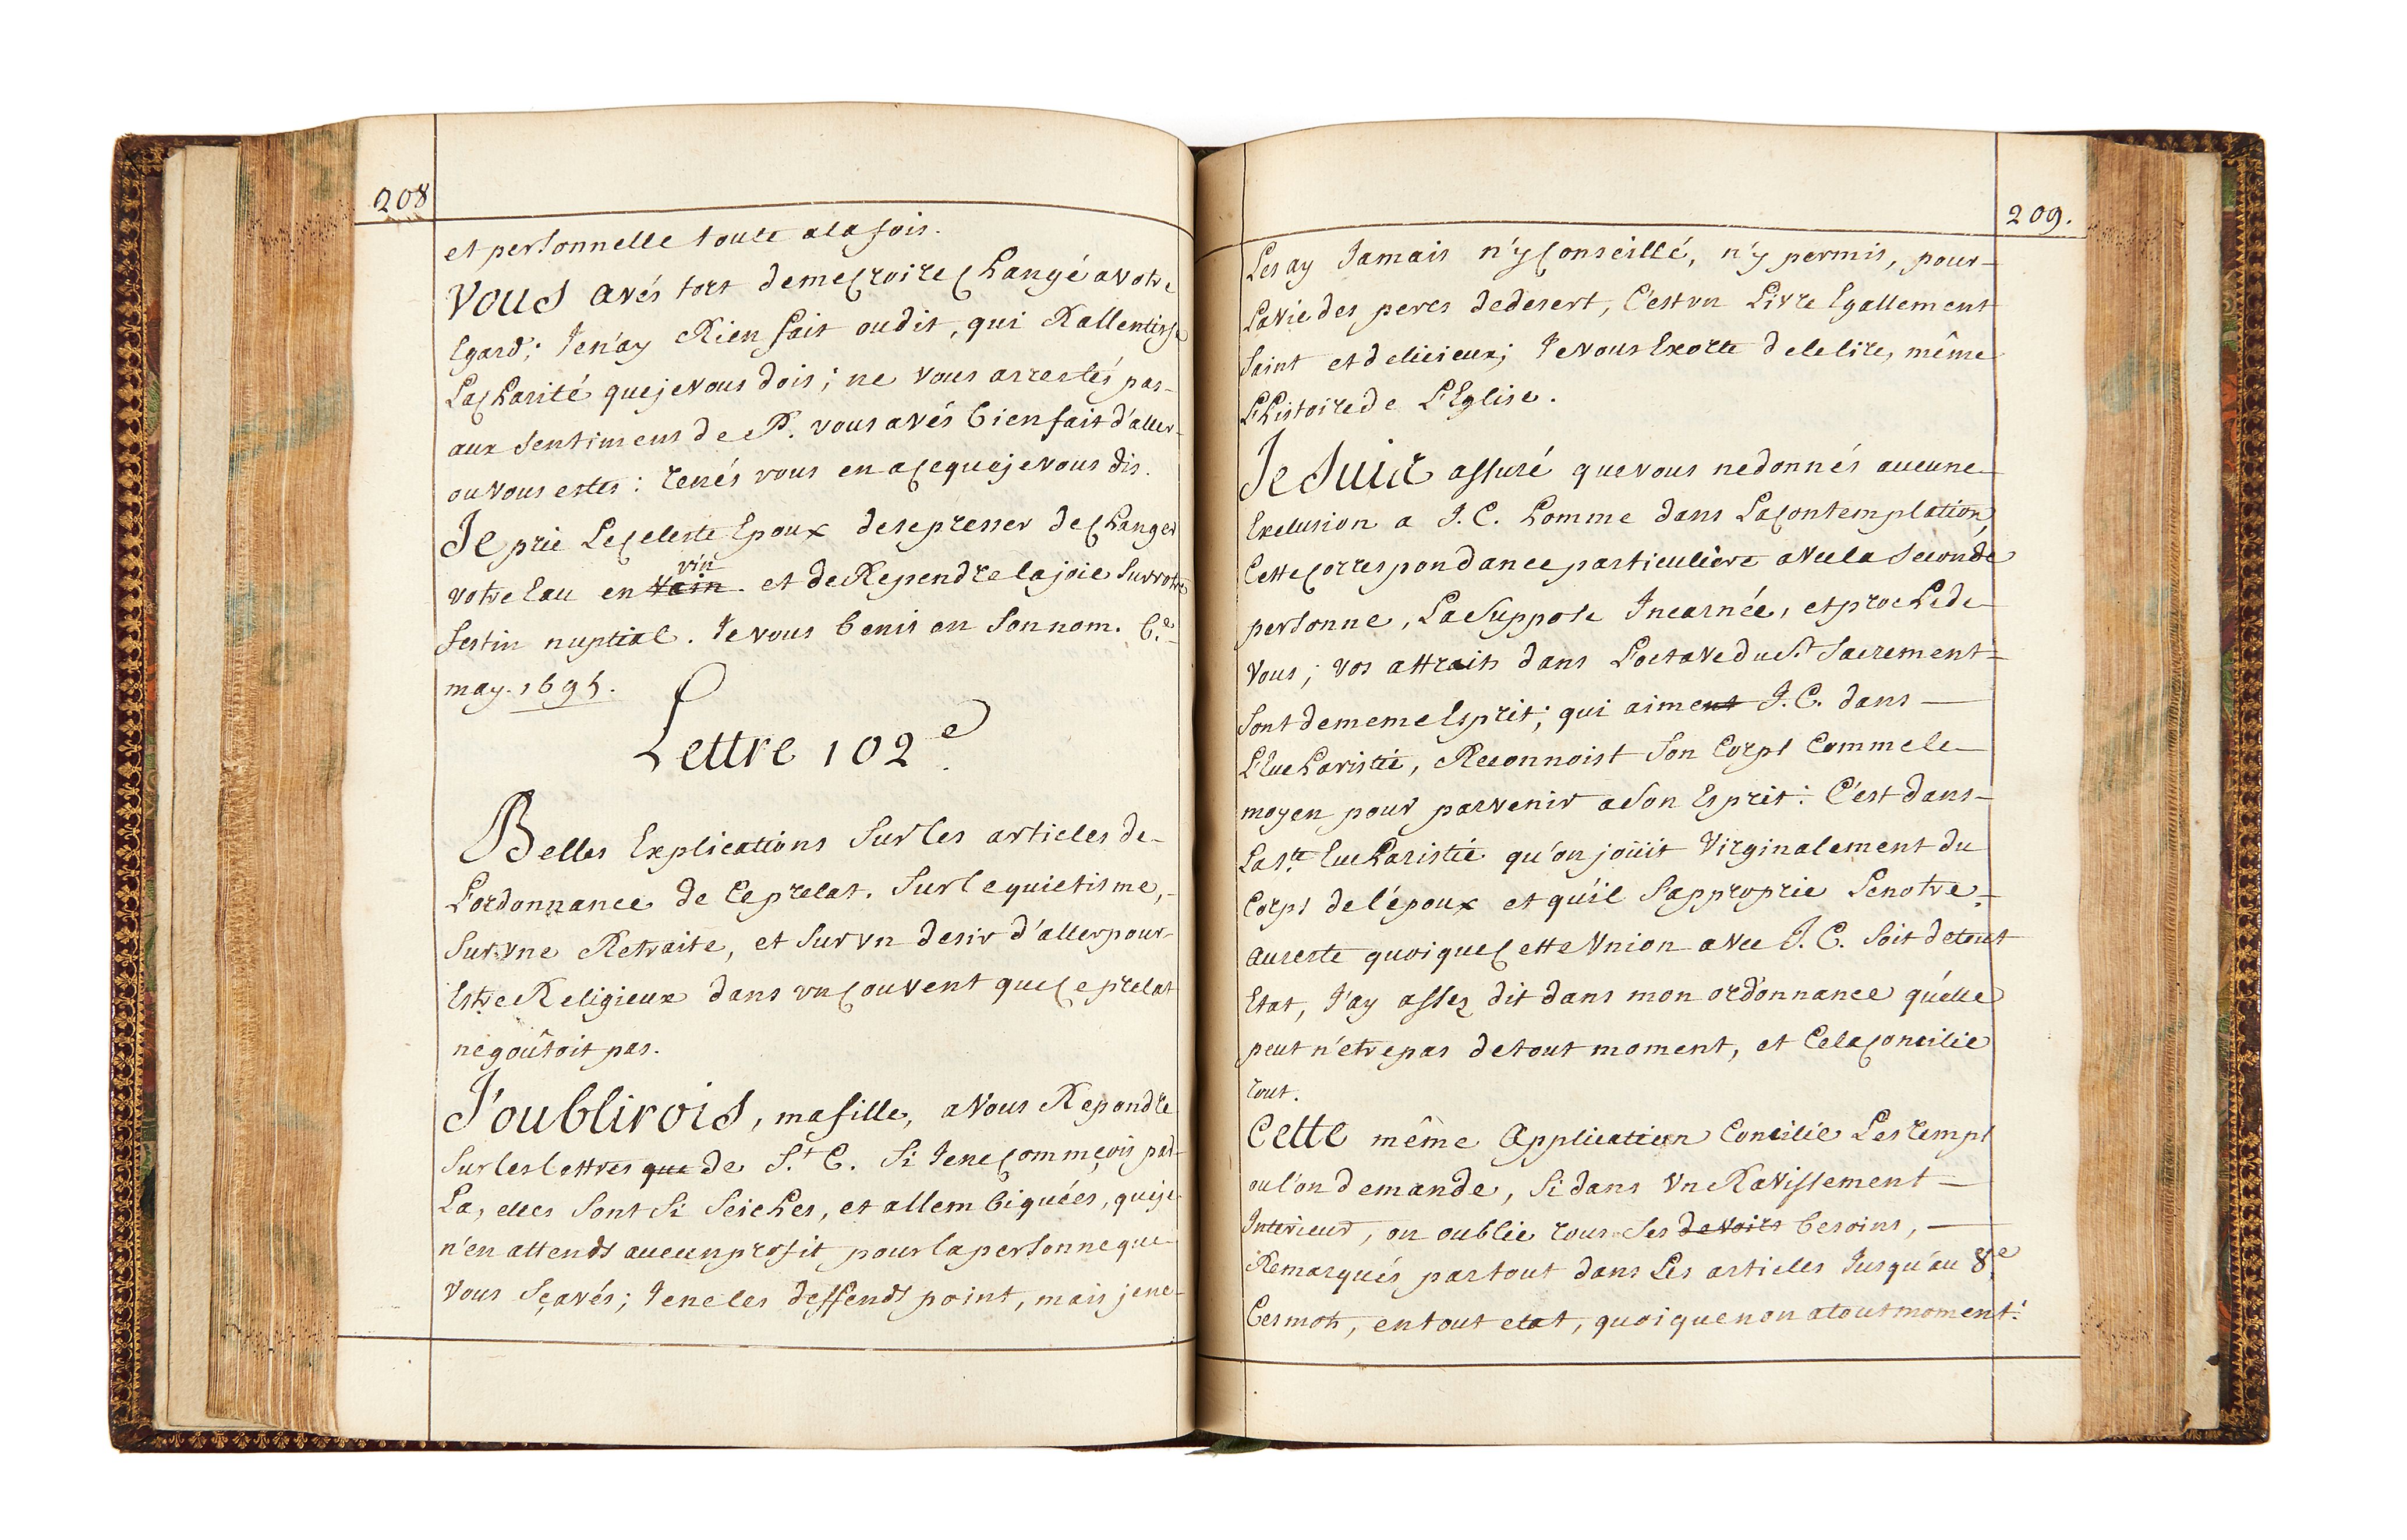 208
et personnelle toute a la fois.
Vous avés tort de me croire changé a votre
Egard; Je n'ay Rien fait ou dit, qui Rallentisse
La charité que je vous dois; ne vous arrestés pas
aux sentimens de P. vous avés bien fait d'aller
ou vous estes: tenés vous en a ce que je vous dis.
Je prie Le celeste Epoux de se presser de changer
vin
votre Eau en vain. et de Rependre la joie sur votre
festin nuptial. Je vous benis en son nom. 6.e
may. 1695.
Lettre 102e
Belles Explications sur les articles de
L'ordonnance de ce prelat. sur le quietisme,
sur vne Retraite, et sur vn desir d'aller pour
Estre Religieux dans vn couvent que ce prelat
ne goûtoit pas.
J'oublirois, ma fille, a vous Repondre
sur les lettres que de S.t C. si Je ne commeçois par
La, elles sont si seiches, et allembiquées, que je
n'en attends aucun profit pour la personne que
vous sçavés; Je ne les deffends point, mais je ne
209.
Les ay Jamais n'y conseillé, n'y permis, pour
La vie des peres de desert, C'est vn Livre Egallement
saint et delicieux; Je vous Exorte de le lire, même
L'histoire de L'Eglise.
Je suis assuré que vous ne donnés aucune
Exclusion a J. C. homme dans La contemplation
Cette correspondance particulière avec la seconde
personne, La suppose Incarnée, et proche de
vous; vos attraits dans L'octave du S.t Sacrement
sont de meme Esprit; qui aiment J. C. dans
L'Eucharistie, Reconnoist son Corps comme le
moyen pour parvenir a son Esprit: C'est dans
La s.te Eucharistie qu'on joüit Virginalement du
Corps de l'époux et qu'il s'approprie Le notre.
au reste quoique cette Vnion avec J. C. soit de tout
Etat, J'ay assez dit dans mon ordonnance qu'elle
peut n'etre pas de tout moment, et Cela concilie
tout.
Cette même application concilie Les temps
ou l'on demande, si dans vn Ravissement
Interieur, on oublie tous ses devoirs besoins,
Remarqués partout dans Les articles Jusqu'au 8.e
Ces mots, en tout etat, quoique non a tout moment: